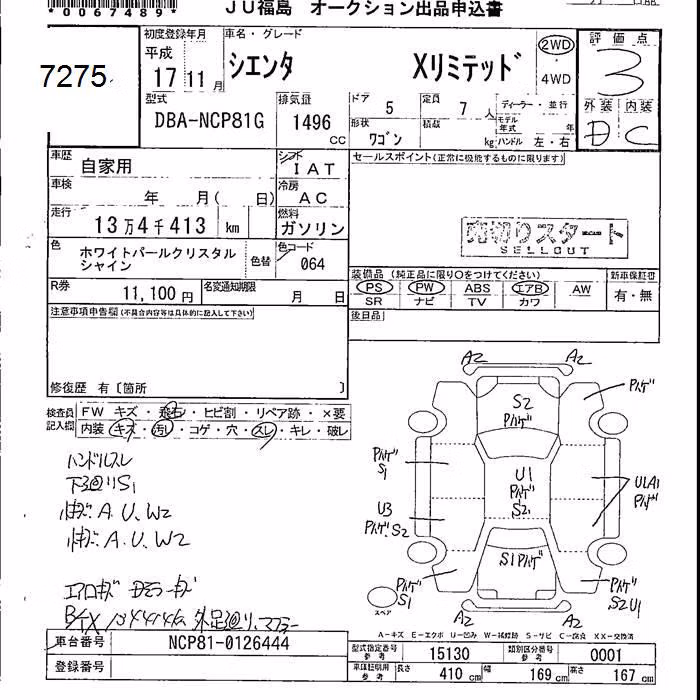 *0067489*
JU福島 オークション出品申込書
7275
初度登録年月 車名・グレード 評価点
平成 17 11月 シエンタ Xリミテッド 2WD・4WD 3
型式 排気量 ドア 定員 ディーラー・並行 外装 内装
DBA-NCP81G 1496 CC 5 7人 モデル年式 年 D C
形状 ワゴン 積載 kg ハンドル 左・右
車歴 自家用 シフト IAT セールスポイント(正常に機能するものに限ります)
車検 年 月( 日) 冷房 AC
走行 13万4千413 km 燃料 ガソリン
売切りスタート
SELLOUT
色 ホワイトパールクリスタルシャイン 色替 色コード 064
装備品(純正品に限り○をつけてください) 新車保証書
R券 11,100円 名変通知期限 月 日
PS PW ABS エアB AW 有・無
SR ナビ TV カワ
注意事項申告欄(不具合内容等は具体的に記入して下さい) 後日品
修復歴 有〔箇所 〕
検査員記入欄 FW キズ・飛石・ヒビ割・リペア跡・×要
内装 キズ・汚レ・コゲ・穴・スレ・キレ・破レ
A2 A2
S2 パハゲ パハゲ
ハンドルスレ
下廻りS1
A.U.W2
A.U.W2
パハゲ S1
U1 パハゲ S2
U1A1 パハゲ
U3 パハゲ.S2
S1パハゲ
パハゲ S1
パハゲ S2U1
スペア
A2 A2
外足廻り、マフラー
A-キズ E-エクボ U-凹み W-補修跡 S-サビ C-腐食 XX-交換済
車台番号 NCP81-0126444
型式指定番号 参考 15130 類別区分番号 参考 0001
登録番号
車庫証明用 参考 長さ 410 cm 幅 169 cm 高さ 167 cm